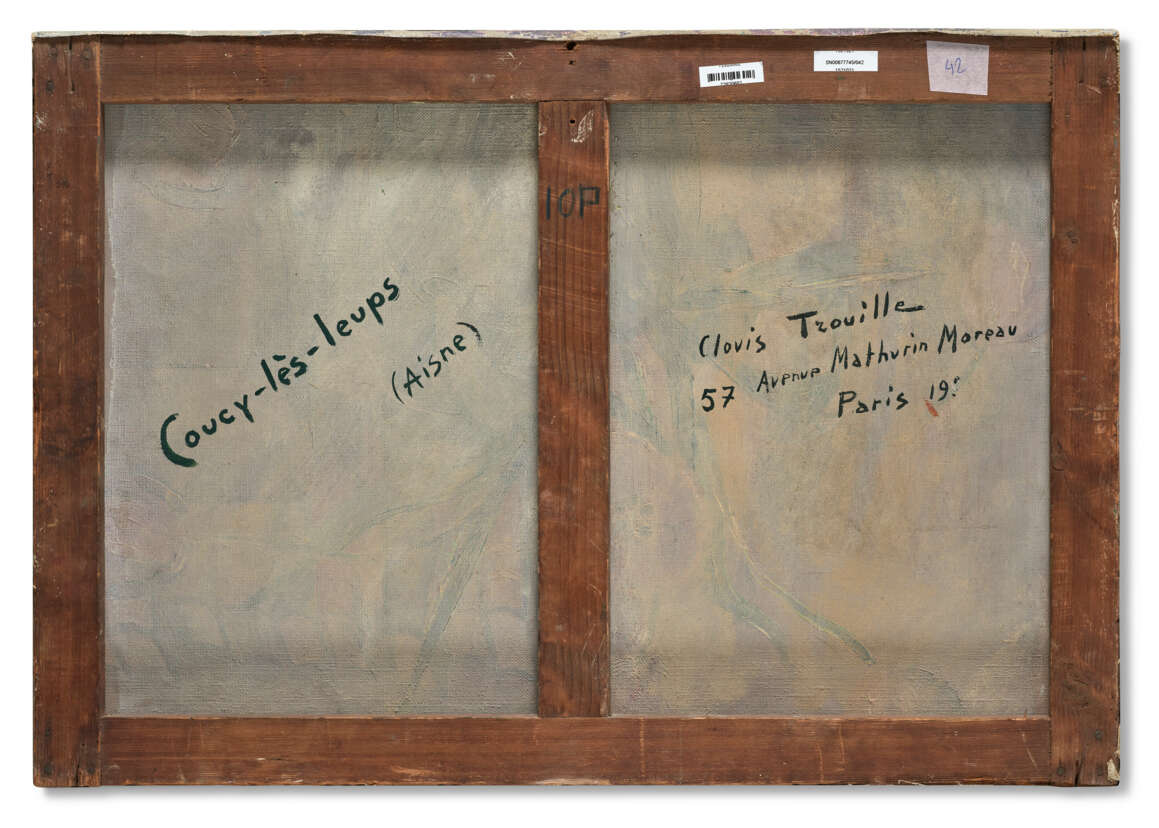 SN00877749/042
42
10P
Coucy-lès-leups
(Aisne)
Clovis Trouille
57 Avenue Mathurin Moreau
Paris 19e